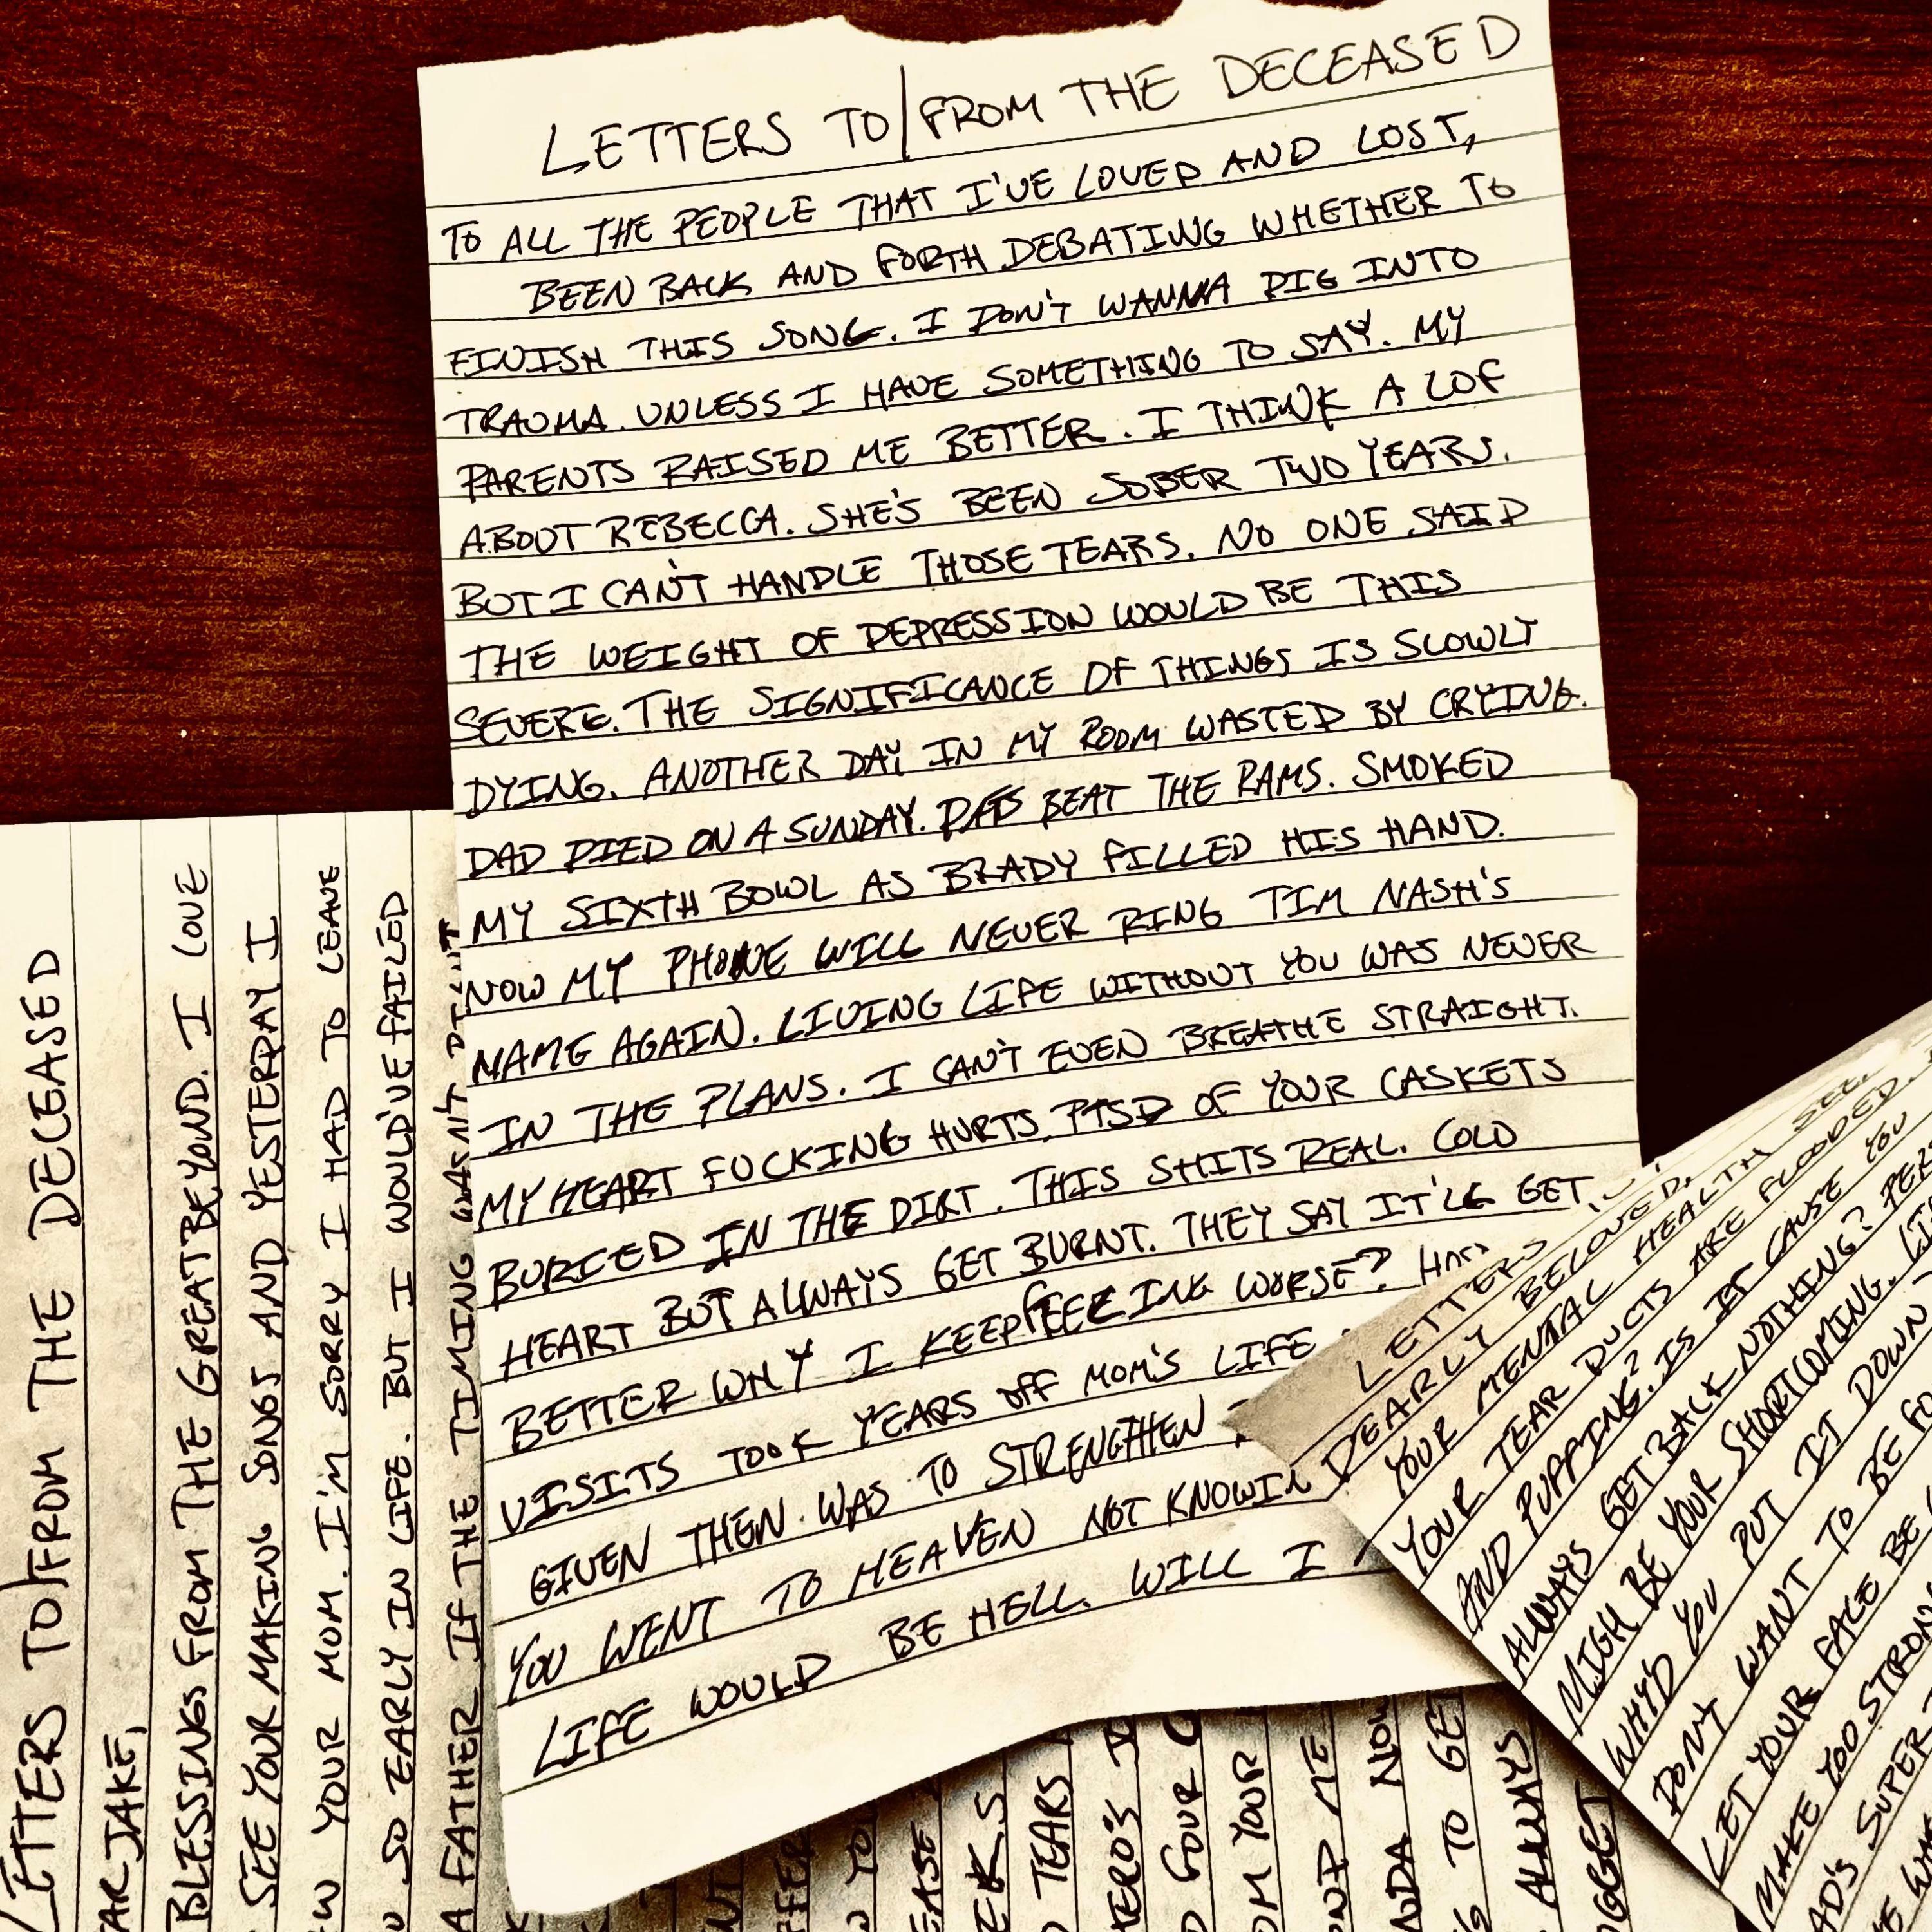 LETTERS TO/FROM THE DECEASED
TO ALL THE PEOPLE THAT I'VE LOVED AND LOST,
BEEN BACK AND FORTH DEBATING WHETHER TO
FINISH THIS SONG. I DON'T WANNA DIG INTO
TRAUMA. UNLESS I HAVE SOMETHING TO SAY. MY
PARENTS RAISED ME BETTER. I THINK A LOF
ABOUT REBECCA. SHE'S BEEN SOBER TWO YEARS.
BUT I CAN'T HANDLE THOSE TEARS. NO ONE SAID
THE WEIGHT OF DEPRESSION WOULD BE THIS
SEVERE. THE SIGNIFICANCE OF THINGS IS SLOWLY
DYING. ANOTHER DAY IN MY ROOM WASTED BY CRYING.
DAD DIED ON A SUNDAY. PATS BEAT THE RAMS. SMOKED
MY SIXTH BOWL AS BRADY FILLED HIS HAND.
NOW MY PHONE WILL NEVER RING TIM NASH'S
NAME AGAIN. LIVING LIFE WITHOUT YOU WAS NEVER
IN THE PLANS. I CAN'T EVEN BREATHE STRAIGHT.
MY HEART FUCKING HURTS. PTSD OF YOUR CASKETS
BURIED IN THE DIRT. THIS SHITS REAL. COLD
HEART BUT ALWAYS GET BURNT. THEY SAY IT'LL GET
BETTER WHY I KEEP FEELING WORSE?
VISITS TOOK YEARS OFF MOM'S LIFE
GIVEN THEN WAS TO STRENGTHEN
YOU WENT TO HEAVEN NOT KNOWIN
LIFE WOULD BE HELL. WILL I
LETTERS TO/FROM THE DECEASED
AR JAKE,
BLESSINGS FROM THE GREAT BEYOND. I LOVE
SEE YOUR MAKING SONGS AND YESTERDAY I
W YOUR MOM. I'M SORRY I HAD TO LEAVE
U SO EARLY IN LIFE. BUT I WOULD'VE FAILED
A FATHER IF THE TIMING WASN'T
LETTERS
DEARLY BELOVED,
YOUR MENTAL HEALTH SEE.
YOUR TEAR DUCTS ARE FLOODED
AND PUPPING? IS IT CAUSE YOU
ALWAYS GET BACK NOTHING?
MIGH BE YOUR SHORTCOMING.
WHY'D YOU PUT IT DOWN
DON'T WANT TO BE
LET YOUR FACE BE
MAKE YOO STRON
AD'S SUPER
WA
EASE
EK.S
TEARS
HERO'S
FOUR
OM YOUR
ME
NDA NOW
TO GE
ALWAYS
OGGET